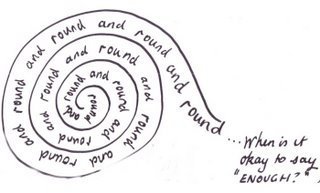 round and round and round and round and round and round and round and round and round and round and round and round and round
...When is it
okay to say
"ENOUGH?"